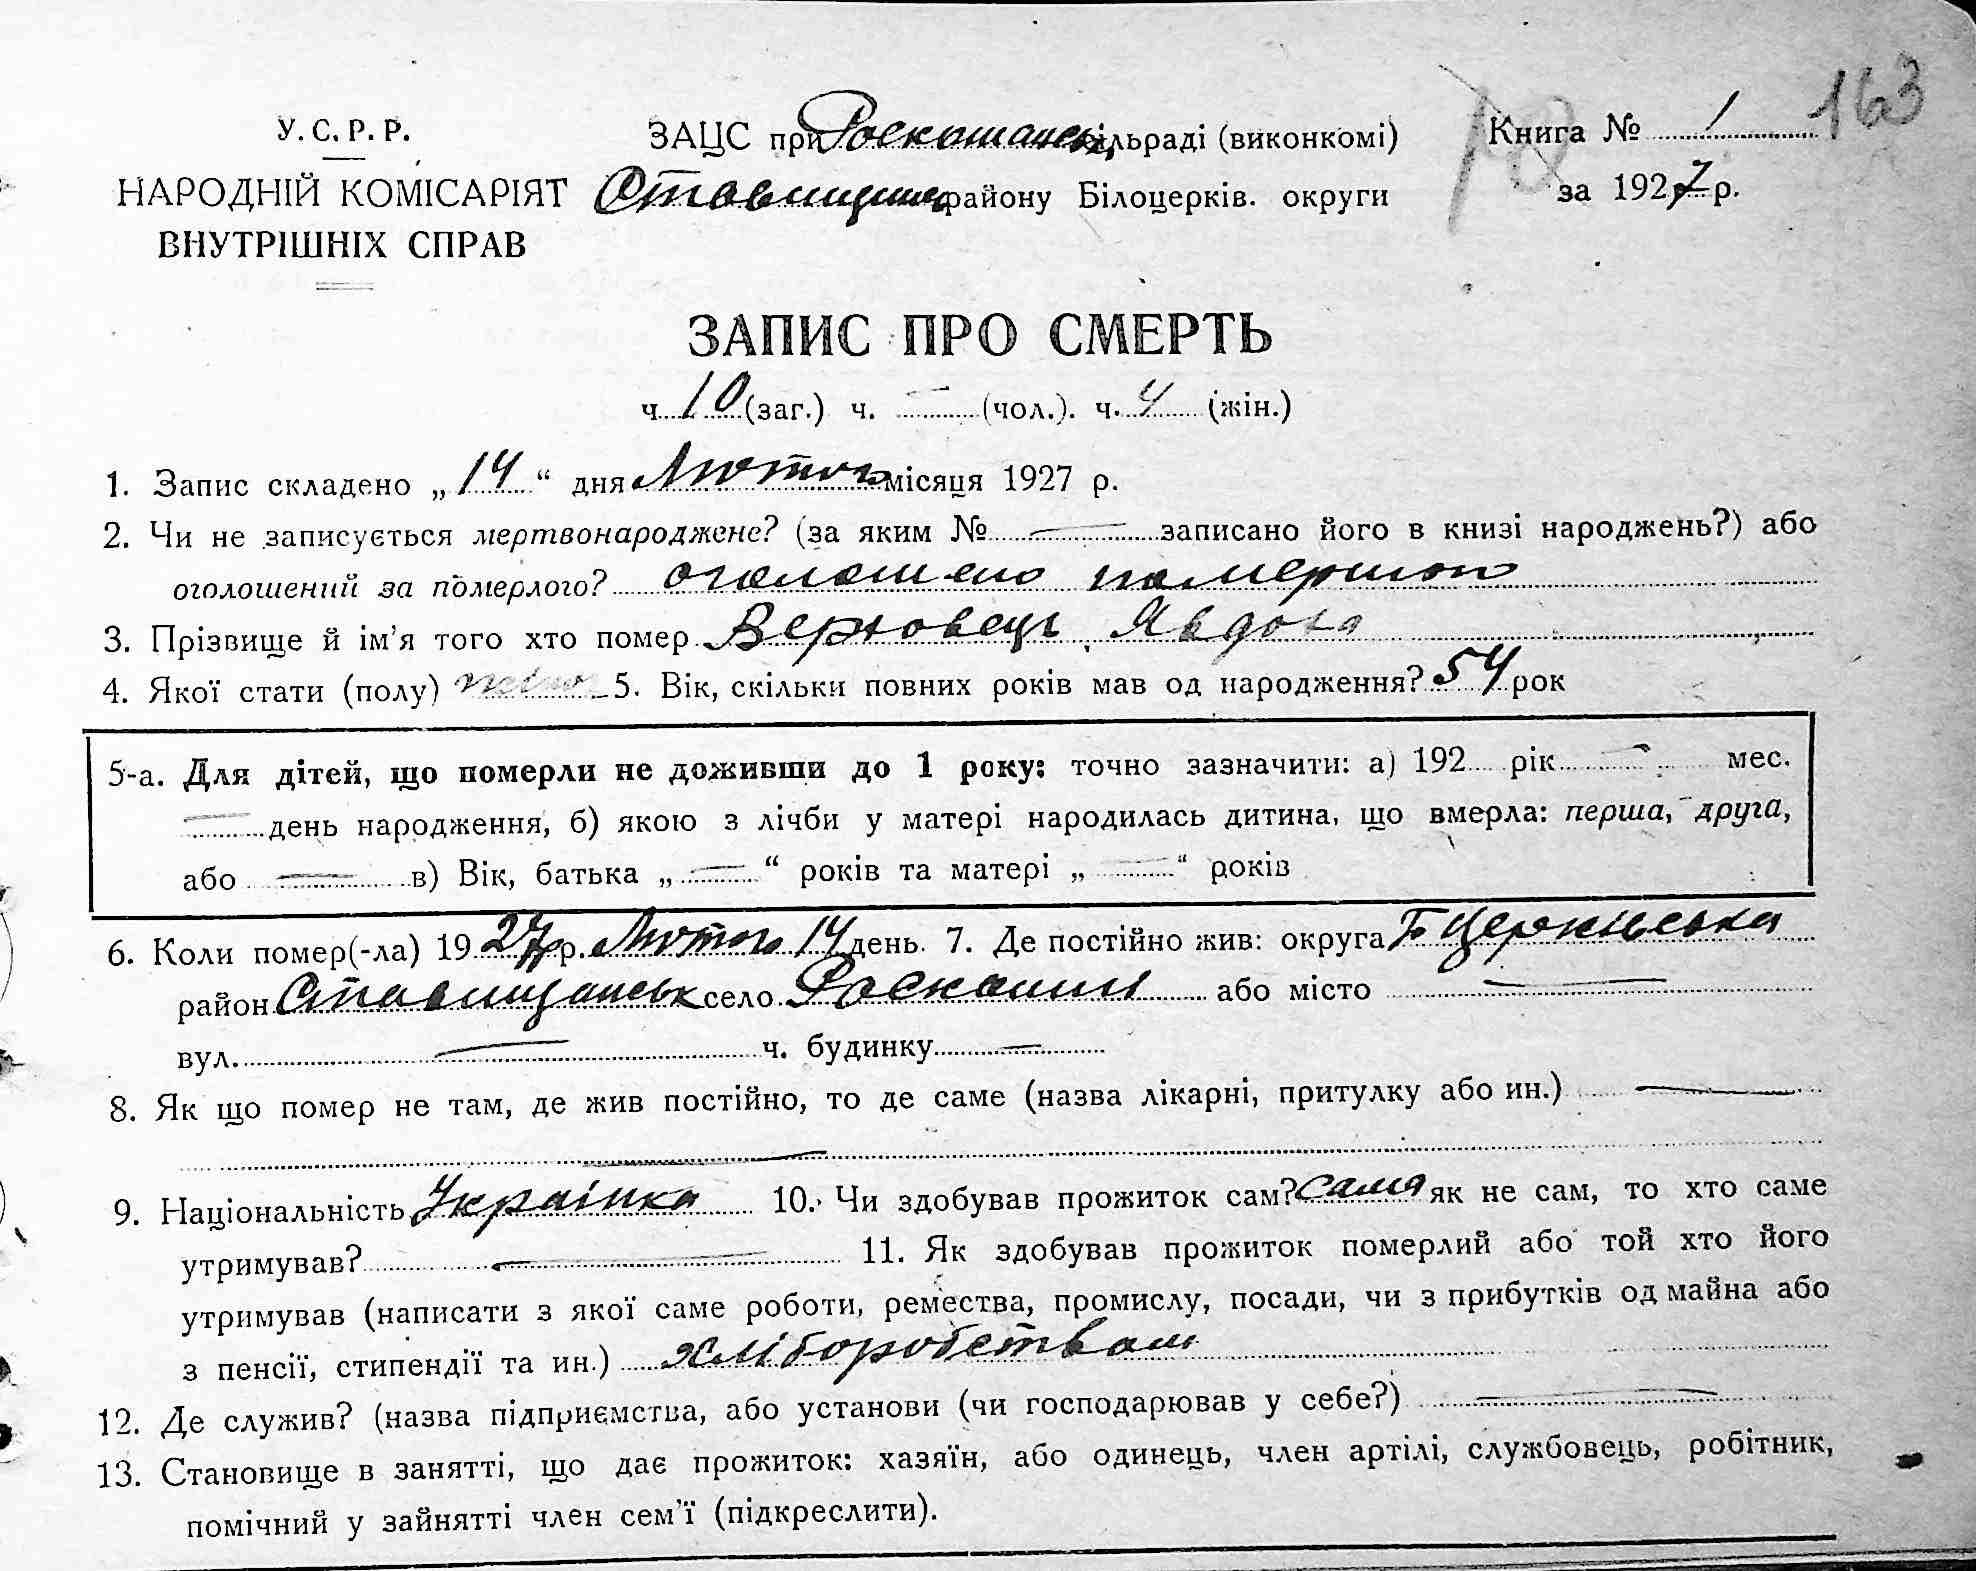 163
У. С. Р. Р.
НАРОДНІЙ КОМІСАРІЯТ
ВНУТРІШНІХ СПРАВ
ЗАЦС при Роскошанськ сільраді (виконкомі)
Ставищанськ району Білоцерків. округи
Книга № 1
за 1927 р.
ЗАПИС ПРО СМЕРТЬ
ч. 10 (заг.) ч. — (чол.). ч. 4 (жін.)
1. Запис складено „14“ дня Лютого місяця 1927 р.
2. Чи не записується мертвонароджене? (за яким № — записано його в книзі народжень?) або
оголошений за померлого? оголошено
3. Прізвище й ім'я того хто помер Верховець Явдоха
4. Якої стати (полу) жіно 5. Вік, скільки повних років мав од народження? 54 рок
5-а. Для дітей, що померли не доживши до 1 року: точно зазначити: а) 192 рік — мес.
— день народження, б) якою з лічби у матері народилась дитина, що вмерла: перша, друга,
або — в) Вік, батька „—“ років та матері „—“ років
6. Коли помер(-ла) 1927 р. Лютого 14 день. 7. Де постійно жив: округа Б Церківська
район Ставищанськ село Роскошні або місто —
вул. — ч. будинку —
8. Як що помер не там, де жив постійно, то де саме (назва лікарні, притулку або ин.) —
—
9. Національність Українка 10. Чи здобував прожиток сам? сама як не сам, то хто саме
утримував? — 11. Як здобував прожиток померлий або той хто його
утримував (написати з якої саме роботи, ремества, промислу, посади, чи з прибутків од майна або
з пенсії, стипендії та ин.) хліборобством
12. Де служив? (назва підприємства, або установи (чи господарював у себе?) —
13. Становище в занятті, що дає прожиток: хазяїн, або одинець, член артілі, службовець, робітник,
помічний у зайнятті член сем'ї (підкреслити).